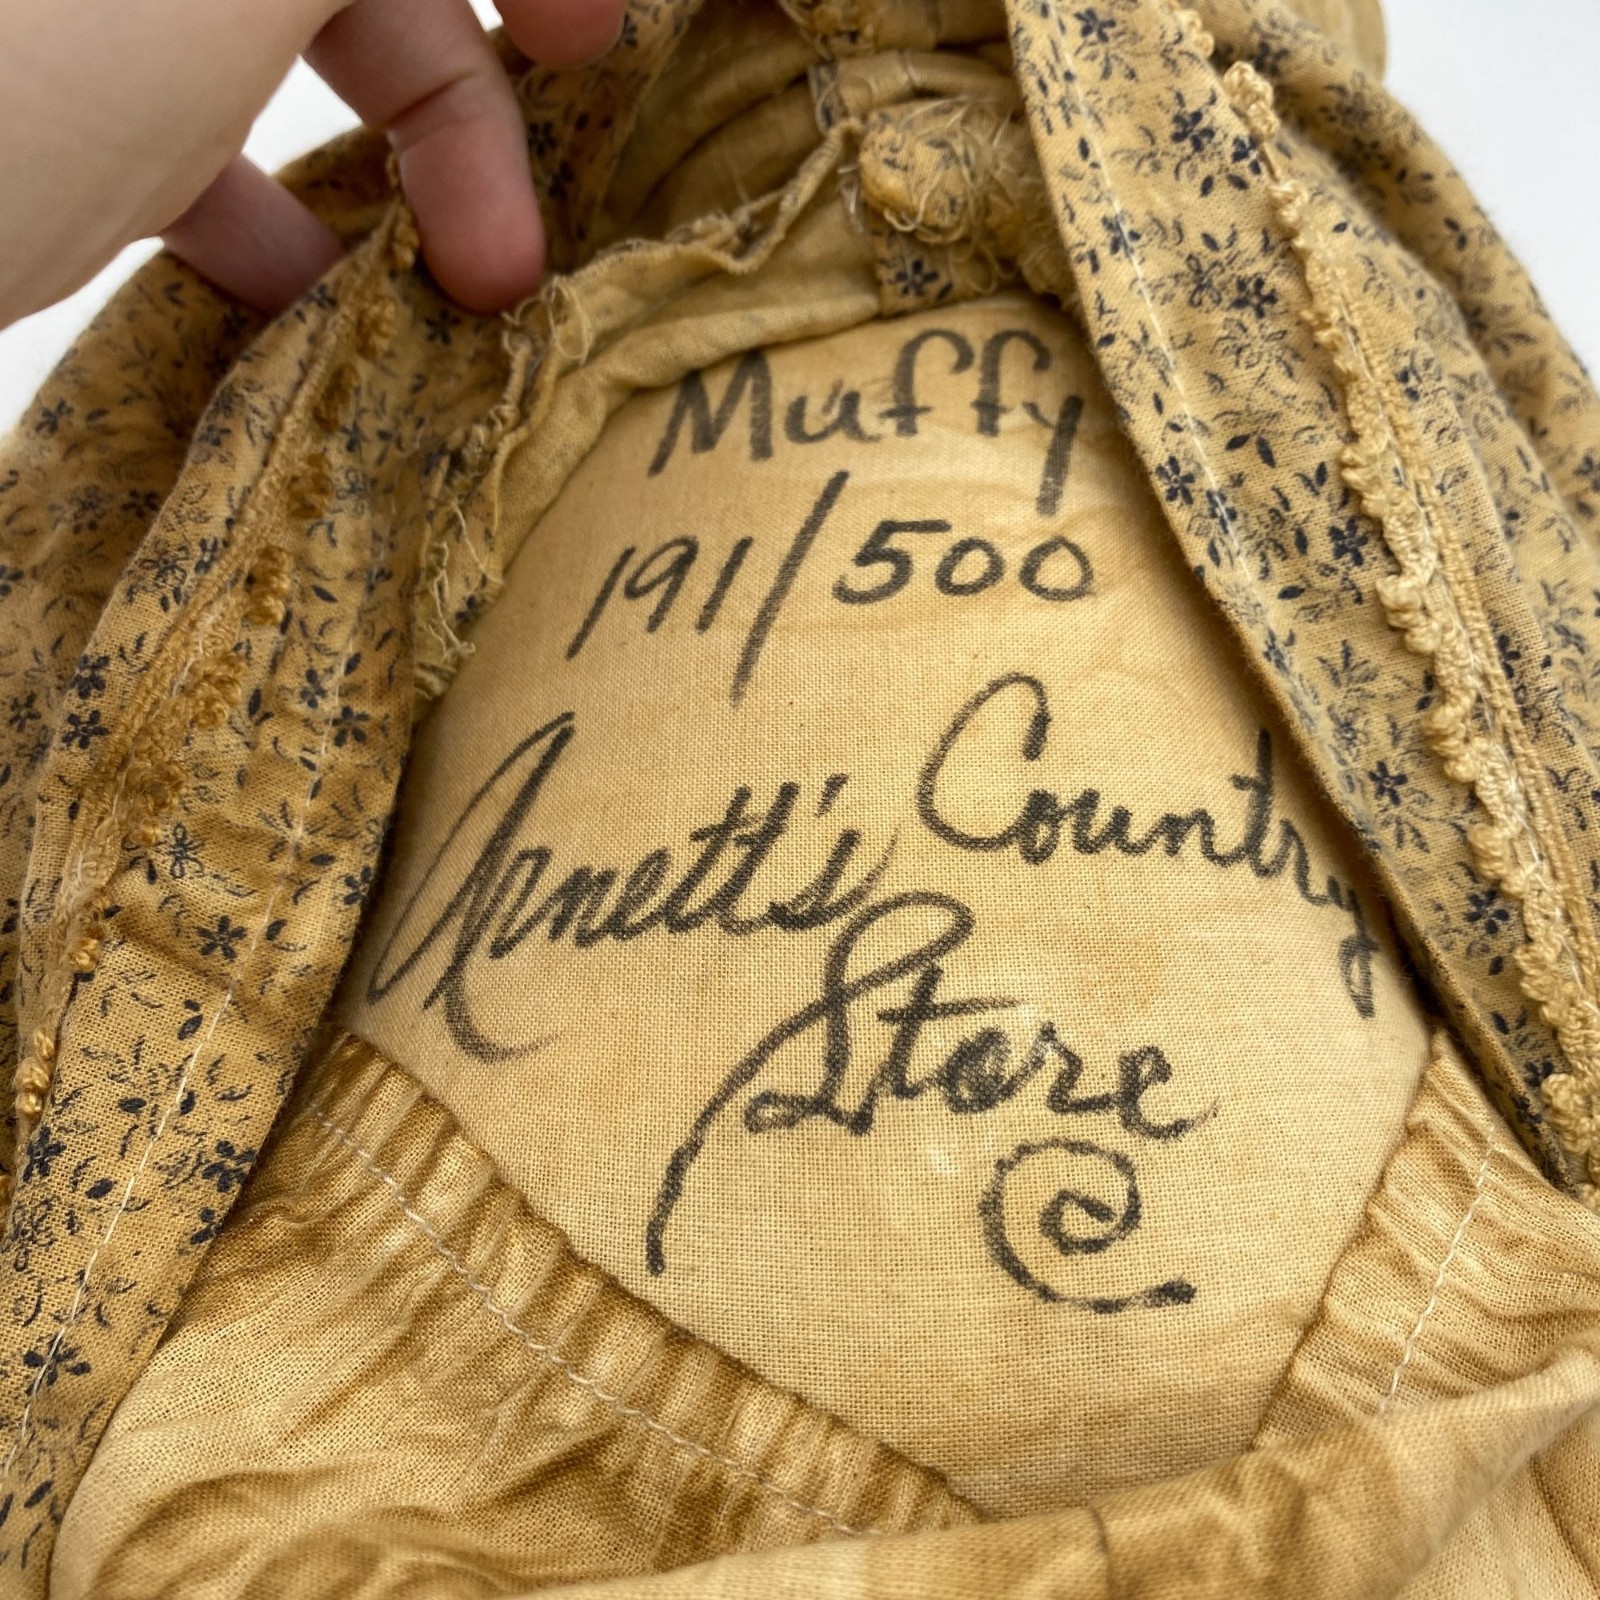 Muffy
191/500
Arnett's Country
Store